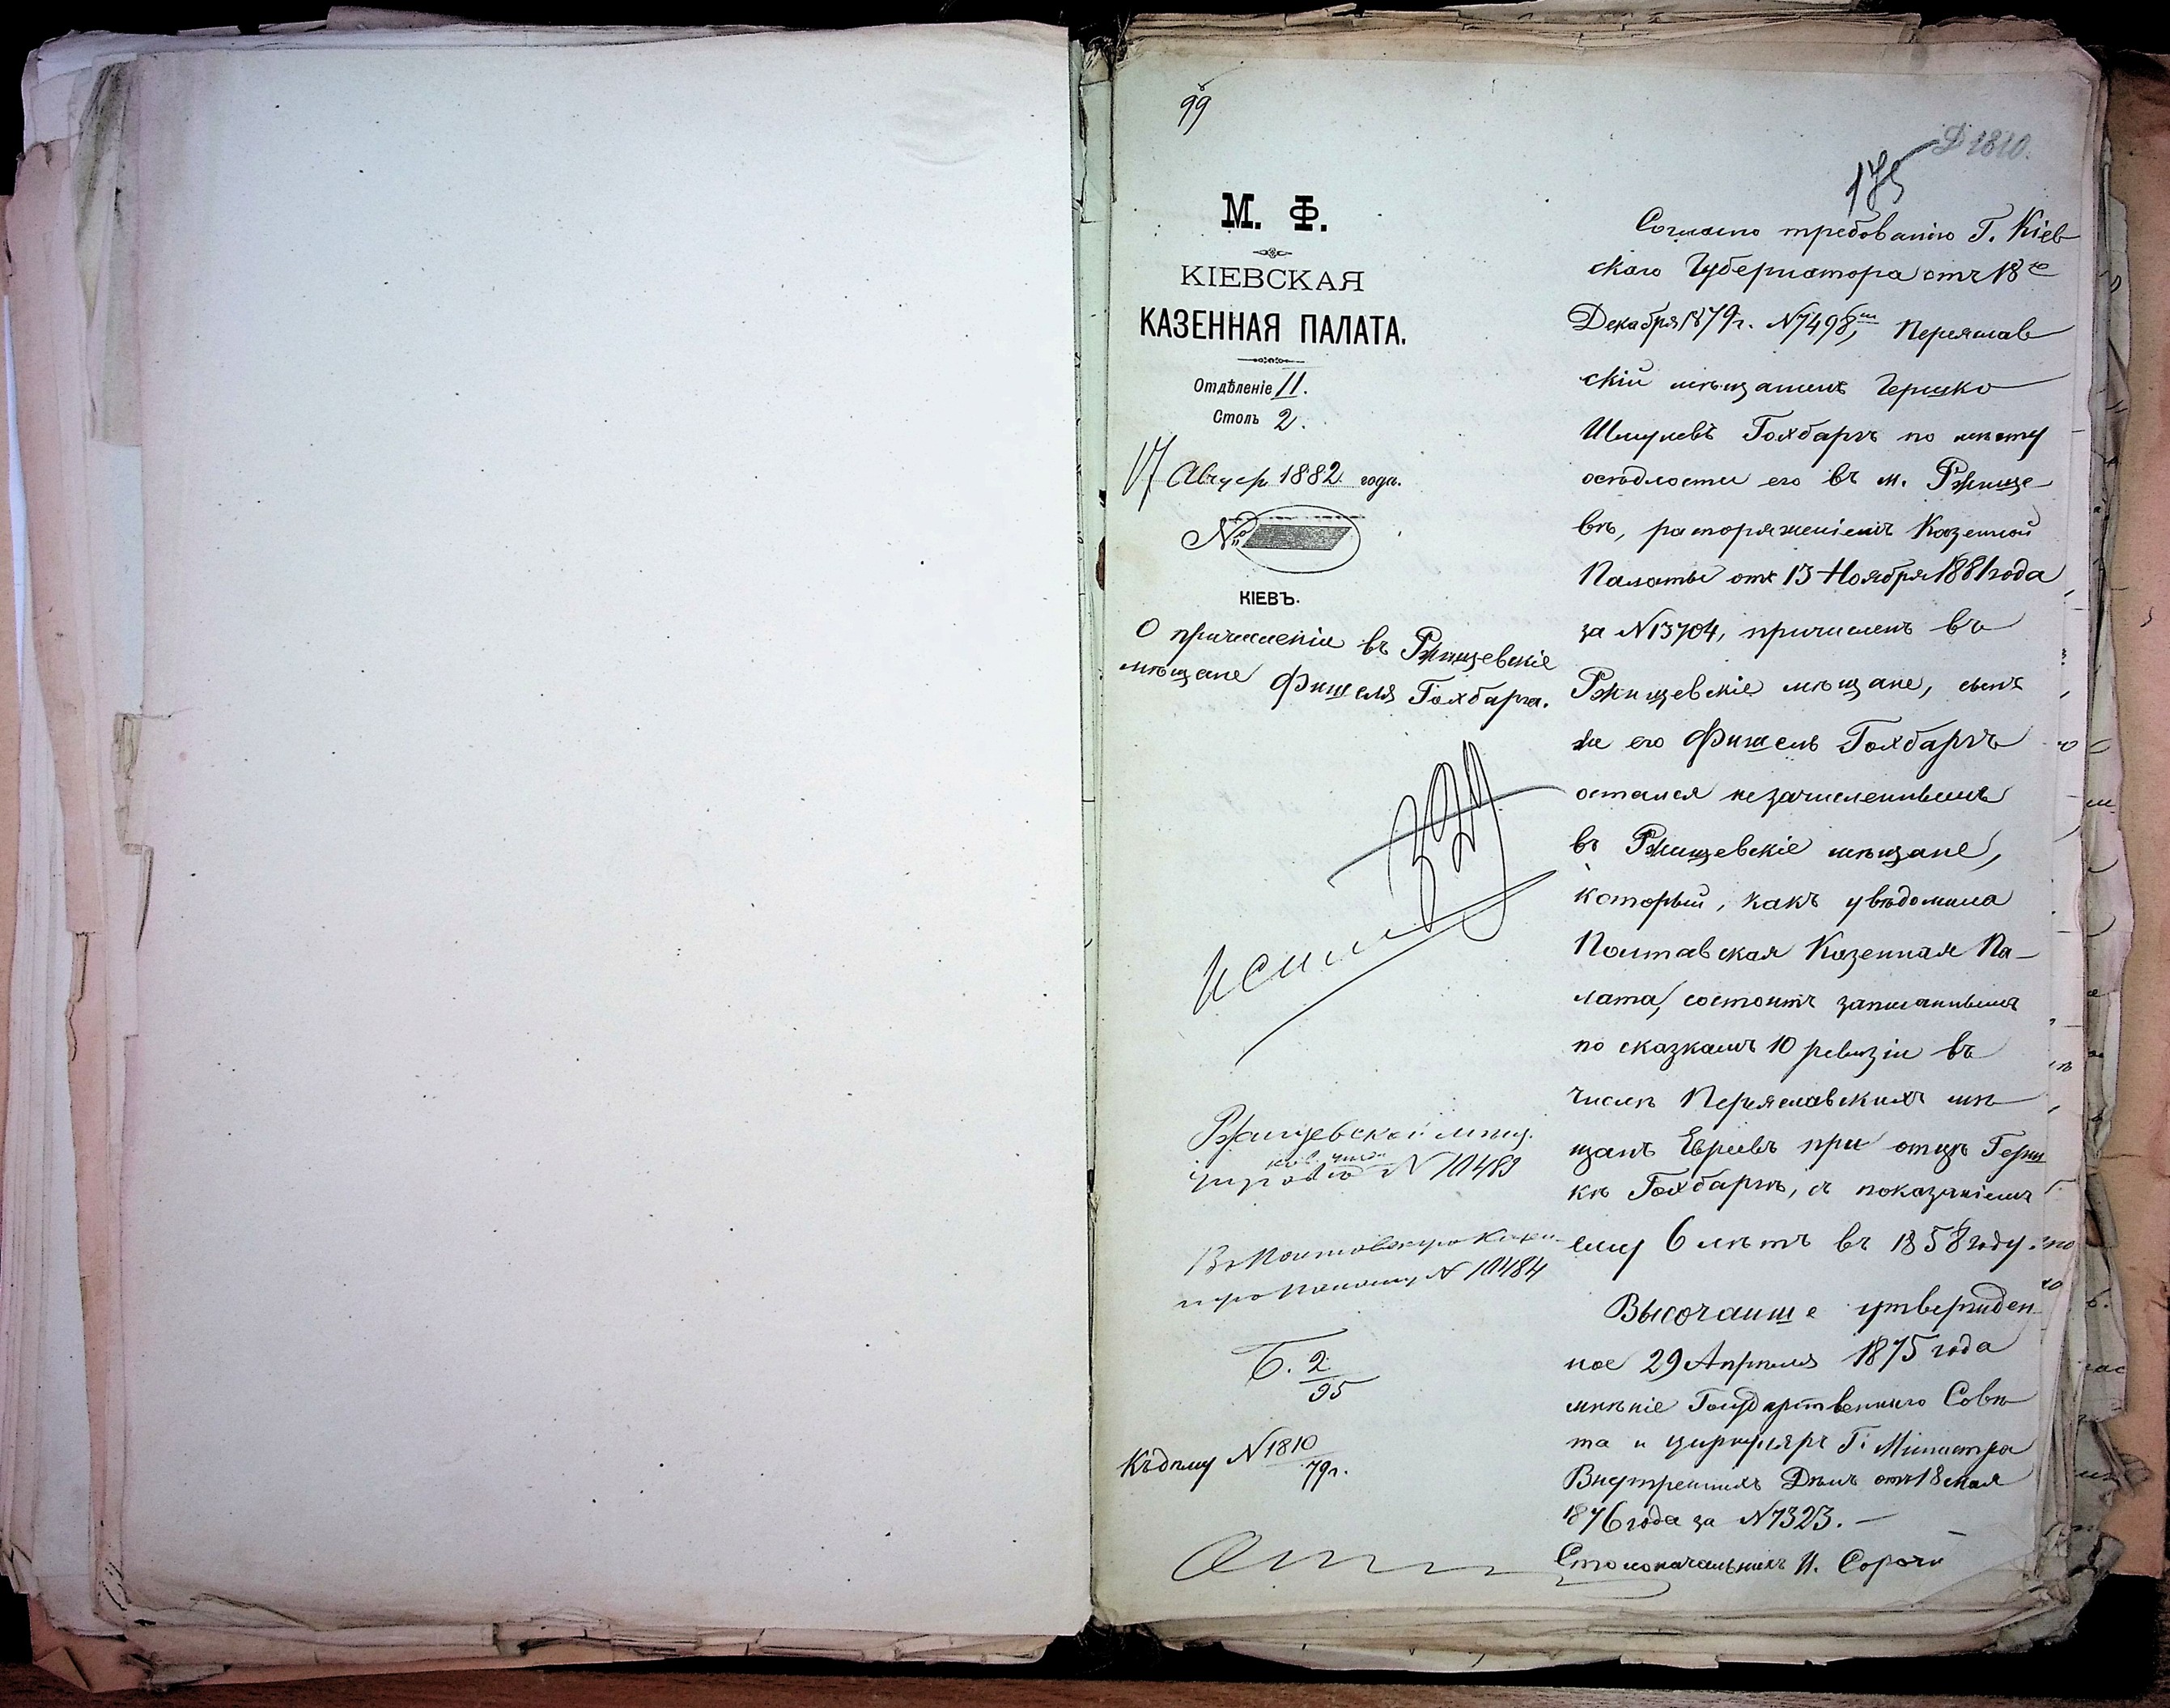 99
Д 1810.
175
М. Ф.
КІЕВСКАЯ
КАЗЕННАЯ ПАЛАТА.
Отдѣленіе II.
Столъ 2.
17 Август 1882 года.
№
КІЕВЪ.
О причисленіи въ Ржищевскіе
мѣщане Фишеля Гохбарга.
Ржищевской мѣщ.
управѣ № 10483
Въ Полтавскую Казен.
ную Палату № 10484
Б. 2/95
Къ дѣлу № 1810/79 г.
Согласно требованію Г. Кіев
скаго Губернатора отъ 18го
Декабря 1879 г. № 7498, Переяслав
скій мѣщанинъ Гершко
Шмулевъ Гохбаргъ по мѣсту
осѣдлости его въ м. Ржище
вѣ, распоряженіемъ Казенной
Палаты отъ 13 Ноября 1881 года
за № 13704, причисленъ въ
Ржищевскіе мѣщане, сынъ
же его Фишель Гохбаргъ
остался незачисленнымъ
въ Ржищевскіе мѣщане,
который, какъ увѣдомила
Полтавская Казенная Па-
лата, состоитъ записаннымъ
по сказкамъ 10 ревизіи въ
числѣ Переяславскихъ мѣ
щанъ Евреевъ при отцѣ Герш
кѣ Гохбаргѣ, съ показаніемъ
ему 6 лѣтъ въ 1858 году.
Высочайше утвержден
ное 29 Апрѣля 1875 года
мнѣніе Государственнаго Совѣ
та и циркуляръ Г. Министра
Внутреннихъ Дѣлъ отъ 18 мая
1876 года за № 7323. —
Столоначальникъ И.